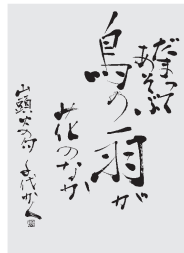 だまって
あそぶ
鳥の羽が
花のなか
山頭火の句